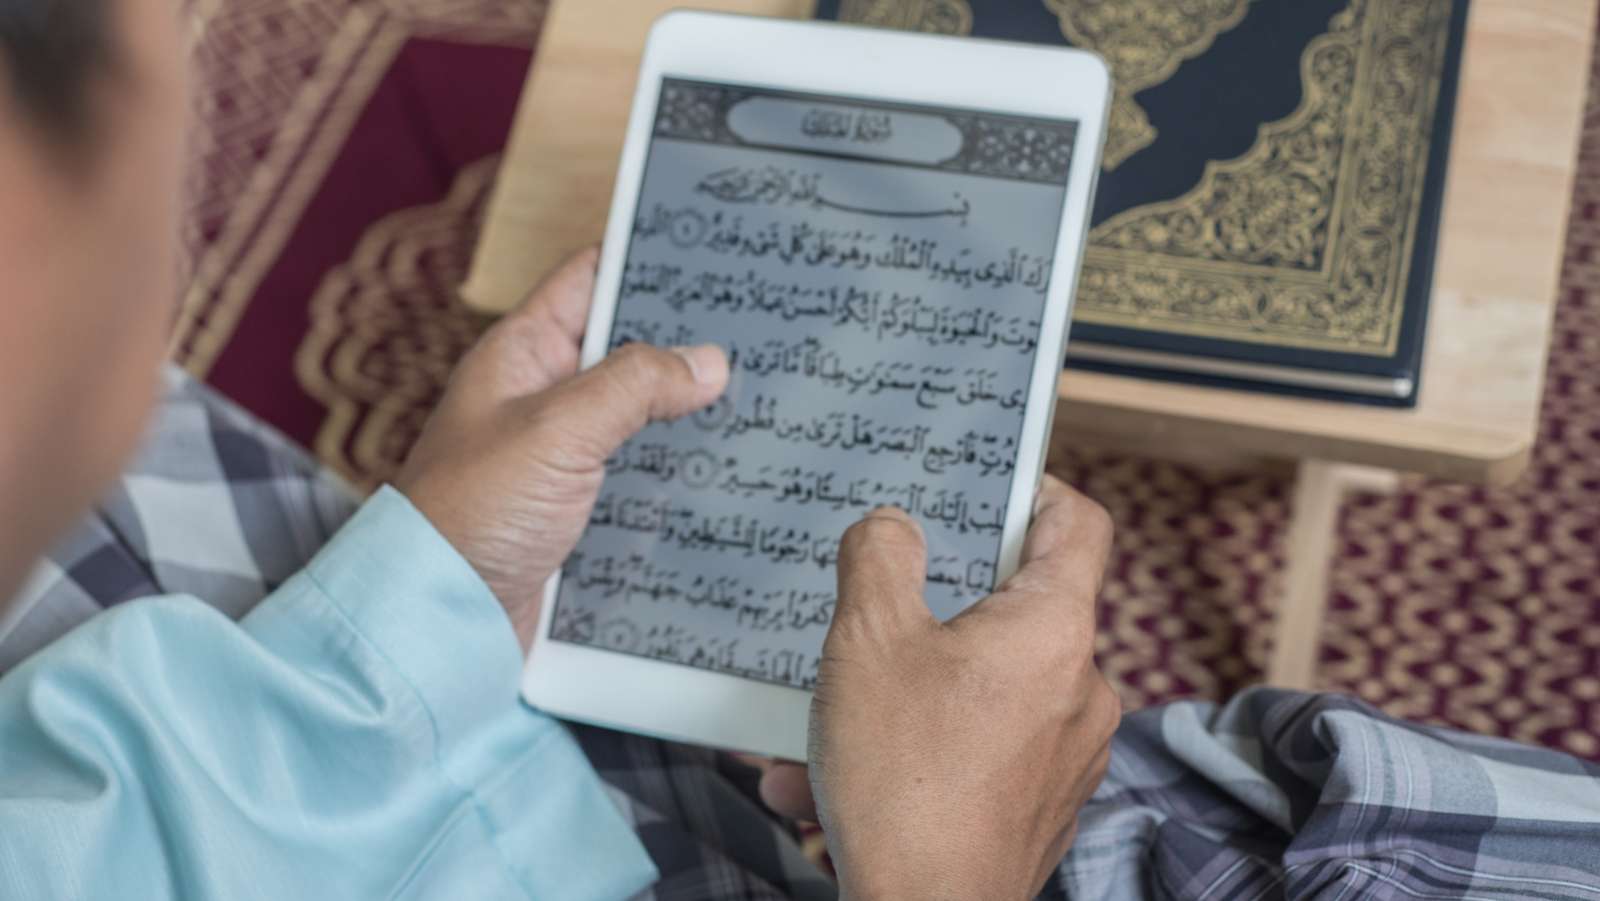 سُورَةُ الْمُلْكِ
بِسْمِ ٱللَّهِ ٱلرَّحْمَٰنِ ٱلرَّحِيمِ
رَكَ ٱلَّذِى بِيَدِهِ ٱلْمُلْكُ وَهُوَ عَلَىٰ كُلِّ شَىْءٍ قَدِيرٌ ١
وْتَ وَٱلْحَيَوٰةَ لِيَبْلُوَكُمْ أَيُّكُمْ أَحْسَنُ عَمَلًا وَهُوَ ٱلْعَزِيزُ ٱلْغَفُو
ذِى خَلَقَ سَبْعَ سَمَٰوَٰتٍ طِبَاقًا مَّا تَرَىٰ فِى
وُتٍ فَٱرْجِعِ ٱلْبَصَرَ هَلْ تَرَىٰ مِن فُطُورٍ ٣
قَلِبْ إِلَيْكَ ٱلْبَصَرُ خَاسِئًا وَهُوَ حَسِيرٌ ٤ وَلَقَدْ زَيَّ
نْيَا بِمَصَ نَٰهَا رُجُومًا لِّلشَّيَٰطِينِ وَأَعْتَدْنَا لَهُمْ
كَفَرُوا۟ بِرَبِّهِمْ عَذَابُ جَهَنَّمَ وَبِئْسَ ٱلْ
وا۟ لَهَا شَهِيقًا وَهِىَ تَفُورُ تَكَادُ